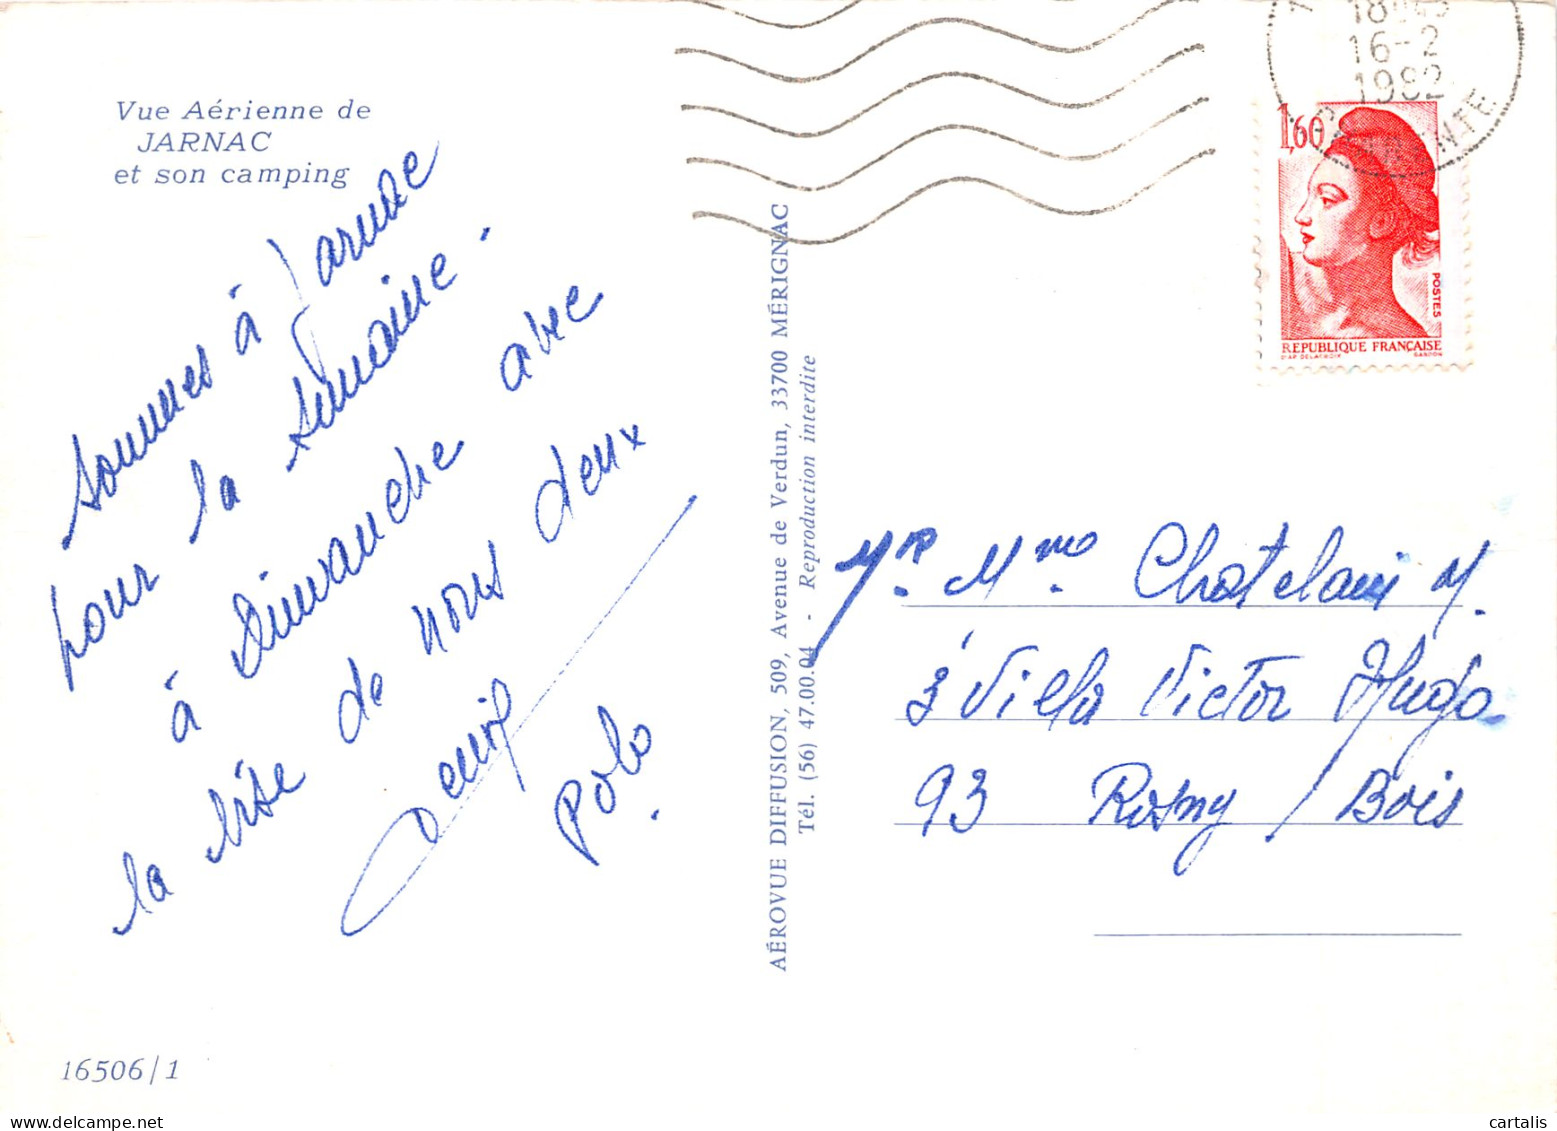 Vue Aérienne de
JARNAC
et son camping
Sommes à Jarnac
pour la semaine.
à Dimanche avec
la bise de nous deux
Denis
Polo.
16506/1
AÉROVUE DIFFUSION, 509, Avenue de Verdun, 33700 MÉRIGNAC
Tél. (56) 47.00.04 - Reproduction interdite
18H45
16-2
1982
CHARENTE
1,60
POSTES
REPUBLIQUE FRANÇAISE
D'AP DELACROIX GANDON
Mr. Mme Chatelain M.
3 Villa Victor Hugo.
93 Rosny / Bois
cartalis